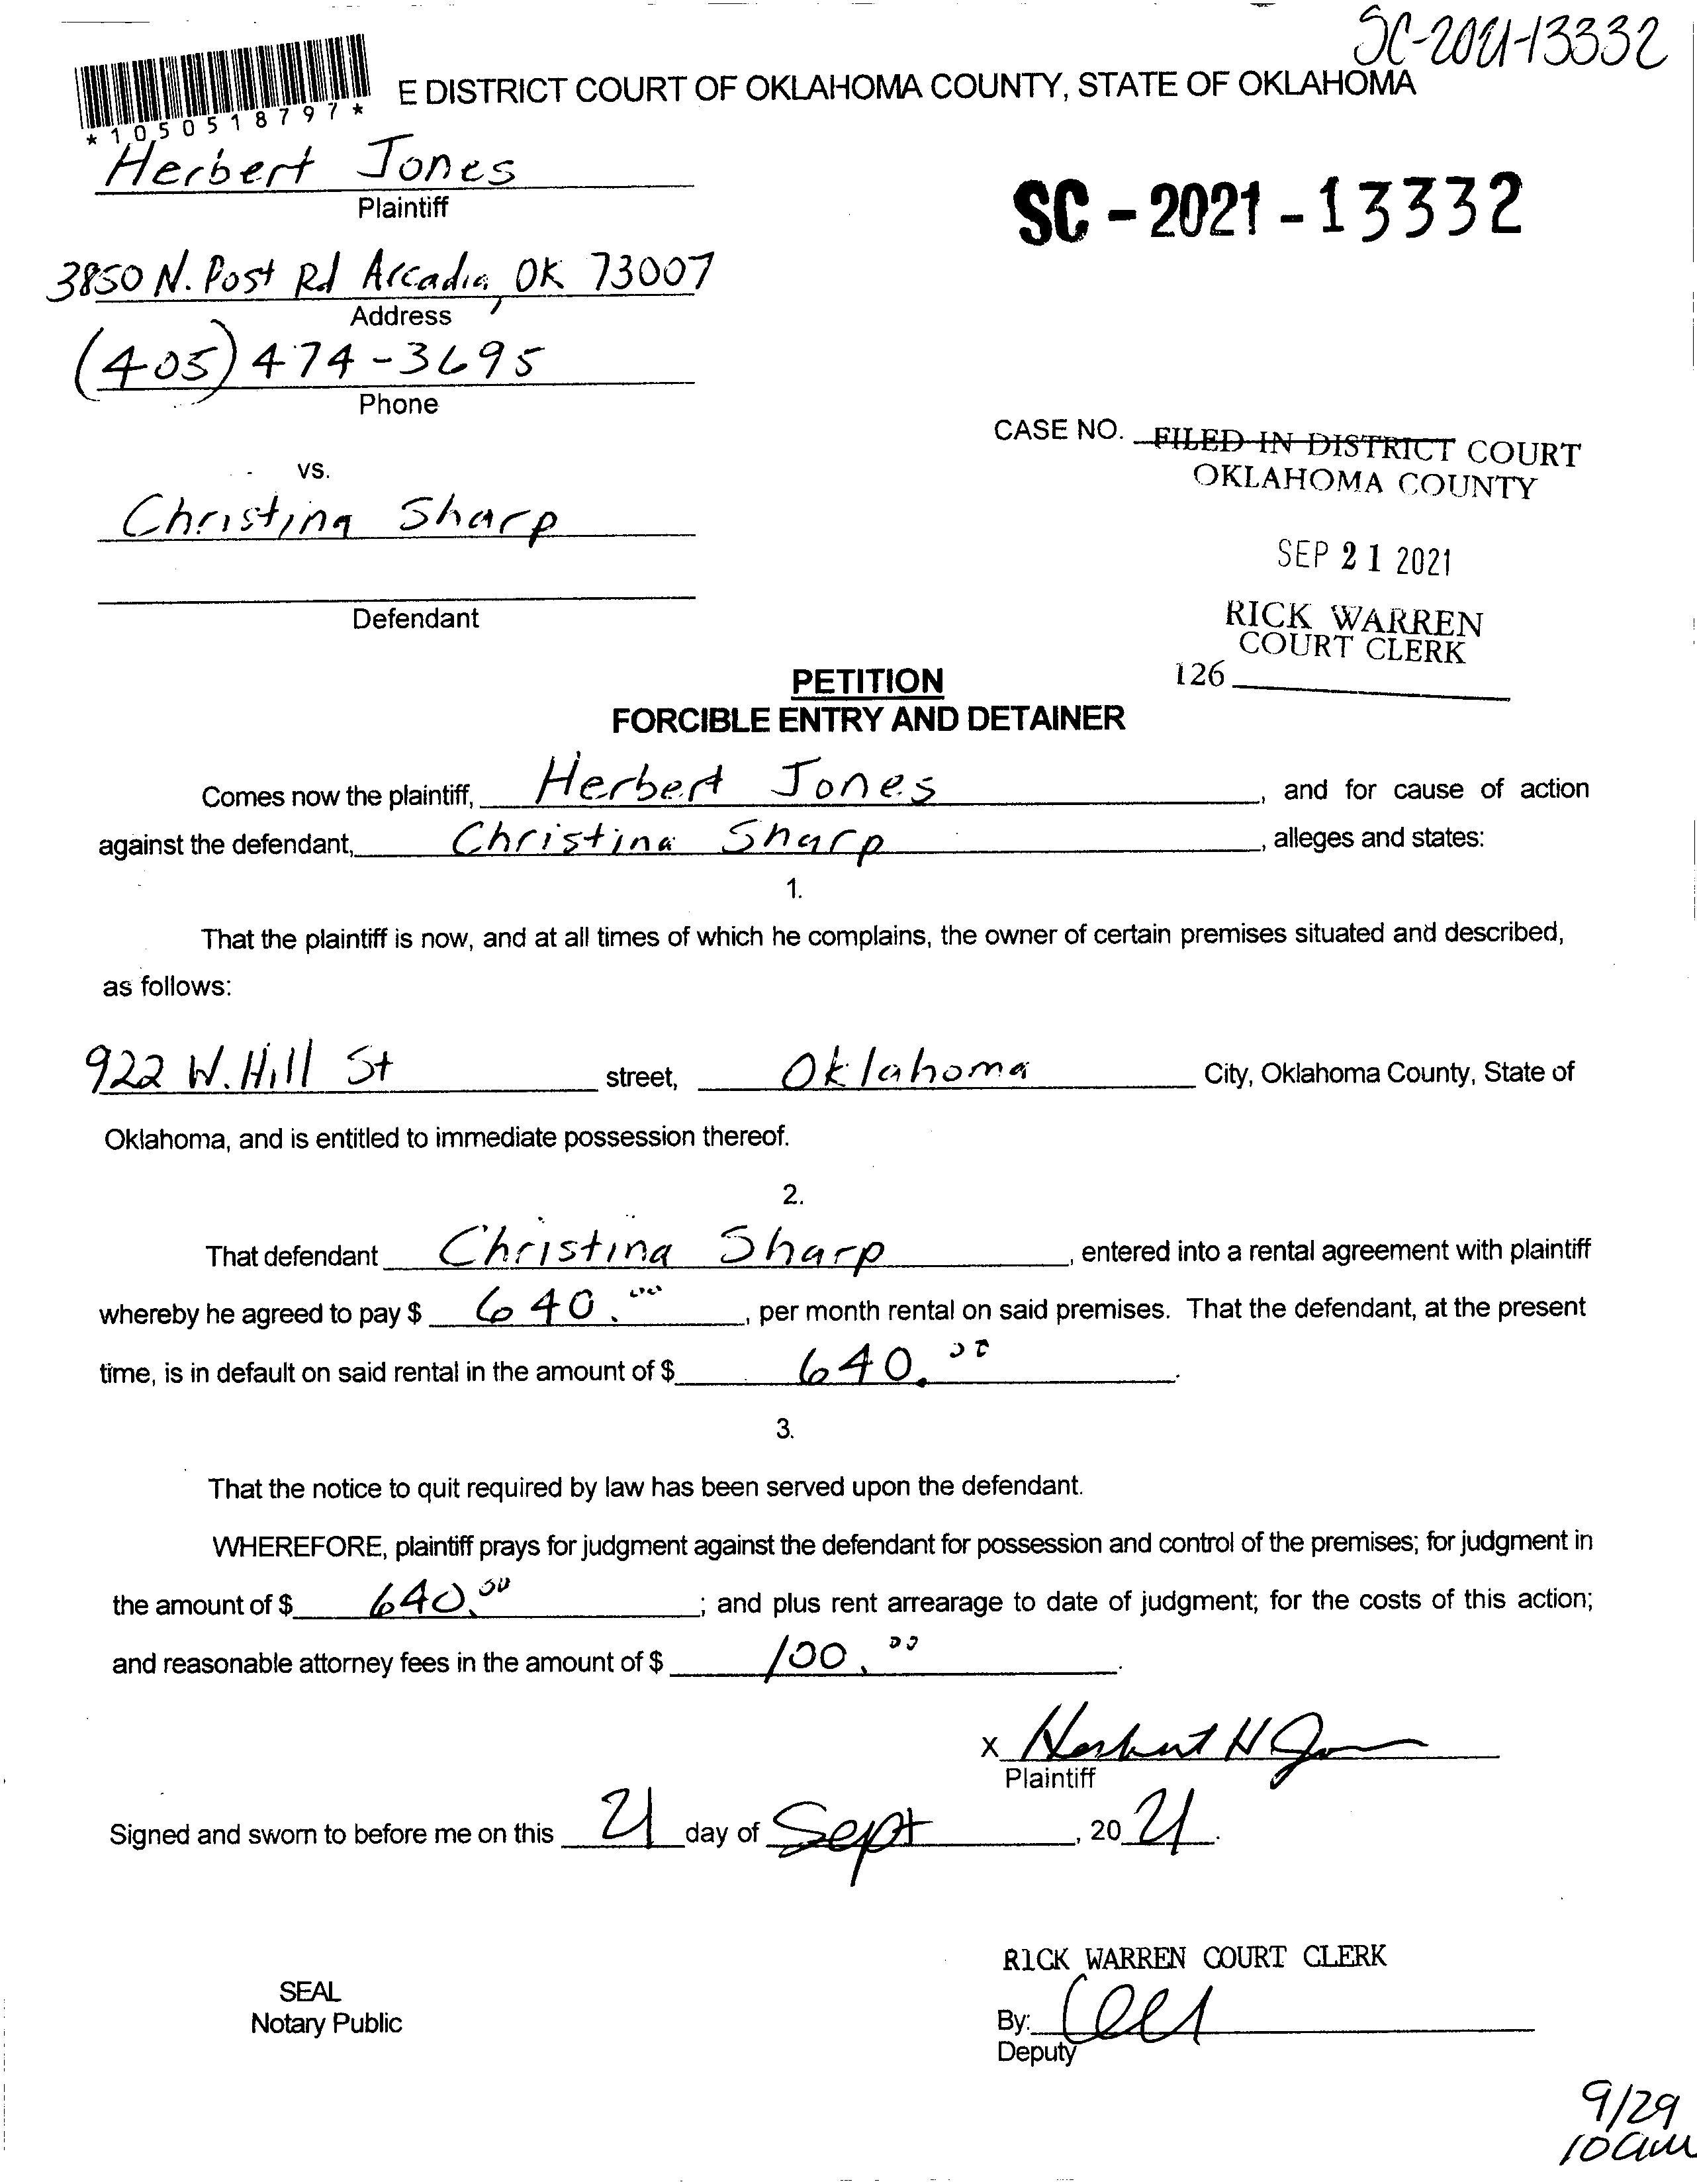 SC-2021-13332
E DISTRICT COURT OF OKLAHOMA COUNTY, STATE OF OKLAHOMA
*1050518797*
Herbert Jones
Plaintiff
SC-2021-13332
3850 N. Post Rd Arcadia, OK 73007
Address
(405) 474-3695
Phone
CASE NO. FILED IN DISTRICT COURT
OKLAHOMA COUNTY
vs.
Christina Sharp
SEP 21 2021
Defendant
RICK WARREN
COURT CLERK
126
PETITION
FORCIBLE ENTRY AND DETAINER
Comes now the plaintiff, Herbert Jones, and for cause of action
against the defendant, Christina Sharp, alleges and states:
1.
That the plaintiff is now, and at all times of which he complains, the owner of certain premises situated and described,
as follows:
922 W. Hill St street, Oklahoma City, Oklahoma County, State of
Oklahoma, and is entitled to immediate possession thereof.
2.
That defendant Christina Sharp, entered into a rental agreement with plaintiff
whereby he agreed to pay $ 640.00, per month rental on said premises. That the defendant, at the present
time, is in default on said rental in the amount of $ 640.00.
3.
That the notice to quit required by law has been served upon the defendant.
WHEREFORE, plaintiff prays for judgment against the defendant for possession and control of the premises; for judgment in
the amount of $ 640.00; and plus rent arrearage to date of judgment; for the costs of this action;
and reasonable attorney fees in the amount of $ 100.00.
X Herbert H Jones
Plaintiff
Signed and sworn to before me on this 21 day of Sept, 2021.
RICK WARREN COURT CLERK
SEAL
Notary Public
By:
Deputy
9/29
10am